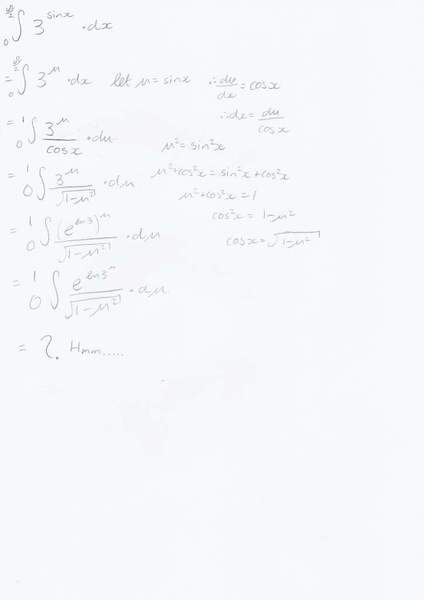 ∫₀^(π/2) 3^(sinx) · dx
= ∫₀^(π/2) 3^μ · dx let μ = sinx ∴ dμ/dx = cosx
∴ dx = dμ/cosx
= ₀∫¹ 3^μ/cosx · dμ
μ² = sin²x
= ₀∫¹ 3^μ/√(1-μ²) · dμ μ²+cos²x = sin²x + cos²x
μ²+cos²x = 1
= ₀∫¹ (e^(ln3))^μ/√(1-μ²) · dμ cos²x = 1-μ²
cosx = √(1-μ²)
= ₀∫¹ e^(ln3^μ)/√(1-μ²) · dμ
= ?. Hmm.....